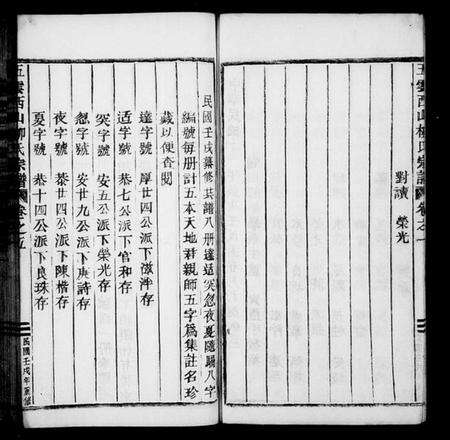 五雲西山柳氏宗譜 卷之一
對讀 榮光
民國壬戌纂修其譜八册達适突忽夜夏隨騧八字
編號每册計五本天地君親師五字爲集註名珍
藏以便查閱
達字號 厚廿四公派下滋泮存
适字號 恭七公派下官和存
突字號 安五公派下榮光存
忽字號 安廿九公派下庚詩存
夜字號 恭廿四公派下陳楷存
夏字號 恭十四公派下良珠存
五雲西山柳氏宗譜 卷之五
民國壬戌年重修